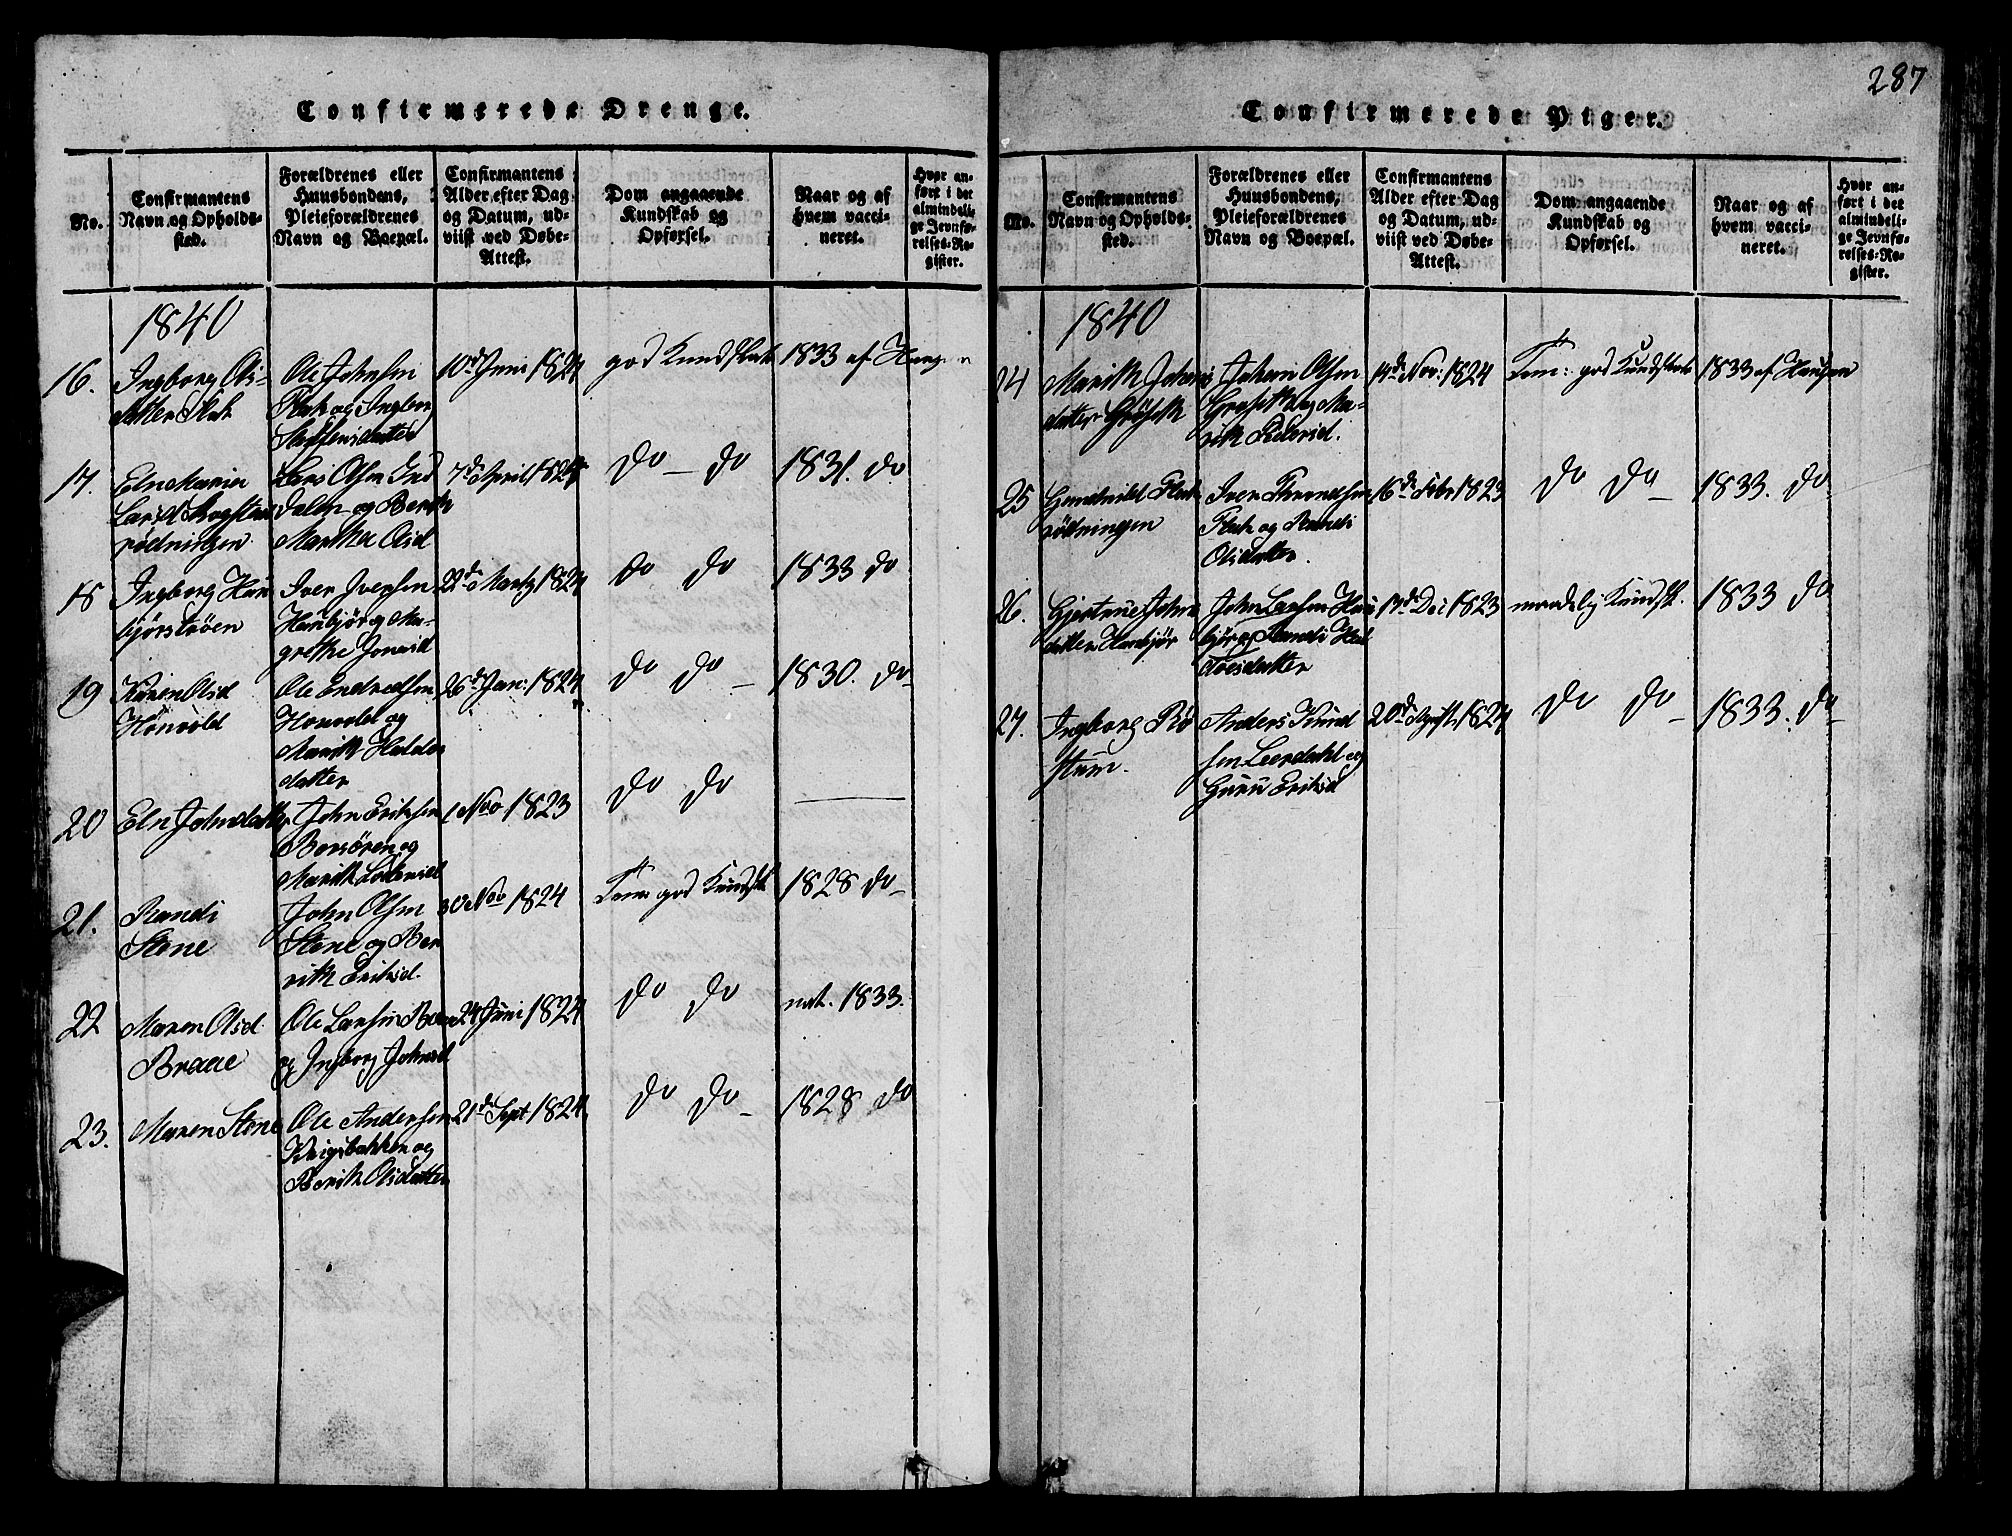 287
Confirmerede Drenge.
No.
Confirmantens
Navn og Opholds-
sted.
Forældrenes eller
Huusbondens,
Pleieforældrenes
Navn og Boepæl.
Confirmantens
Alder efter Dag
og Datum, ud-
viist ved Døbe-
Attest.
Dom angaaende
Kundskab og
Opførsel.
Naar og af
hvem vacci-
neret.
Hvor an-
ført i det
almindeli-
ge Jevnfø-
relses-Re-
gister.
1840
16.
Ingborg Ols-
datter Flak
Ole Johnsen
Flak og Ingbor
Steffensdatter
10de Juni 1824
god Kundskab
1833 af
17.
Eln Maria
Larsd
rødningen
Lars Olsen Ind
dalen og Berth
Martha Olsd
7de April 1824
do – do
1831. do
18
Ingborg Ham
bjørstrøen
Iver Iversen
Hambjør og Ma-
grethe Jonsd
22de Martz 1824
do do
1833 do
19
Karen Olsd
Hønvold
Ole Endresen
Honvold og
Marith Haldor
datter
26de Jan: 1824
do do –
1830. do
20
Eln Johndatter
John Erichsen
og
Marith
1 Nov 1823
do do
21.
Randi
Stene
John Olsen
Stene og Ber
rith Erichsd.
30 Nov 1824
Tem: god Kundsk
1828 do –
22
Maren Olsd
Braae
Ole Larsen
og Ingborg Johnsd
24 Juni 1824
do do
nat. 1833.
23.
Maren Stene
Ole Andersen
Krigsbakken og
Berith Olsdatter
21de Sept 1824
do do –
1828 do
Confirmerede Piger.
No.
Confirmantens
Navn og Opholds-
sted.
Forældrenes eller
Huusbondens,
Pleieforældrenes
Navn og Boepæl.
Confirmantens
Alder efter Dag
og Datum, ud-
viist ved Døbe-
Attest.
Dom angaaende
Kundskab og
Opførsel.
Naar og af
hvem vacci-
neret.
Hvor an-
ført i det
almindeli-
ge Jevnfø-
relses-Re-
gister.
1840
24
Marith Johans
datter Grøseth
Johan Olsen
Grøseth og Ma-
rith Pedersd.
14de Nov: 1824
Tem: god Kundskab
1833 af Hansen
25
Gundhild Flak
rødningen
Iver Thronsen
Flak og Randi
Olsdatter.
16de Febr 1823
do do –
1833. do
26.
Gjertrue John
datter Hambjør
John Larsen Ham
bjør og Randi Hal
vorsdatter
17de Dec 1823
maadelig Kundsk.
1833 do
27.
Ingborg Rø
stum.
Anders Knud
sen Leerdahl og
Guru Erichsd
20de August 1824
do do –
1833. do –